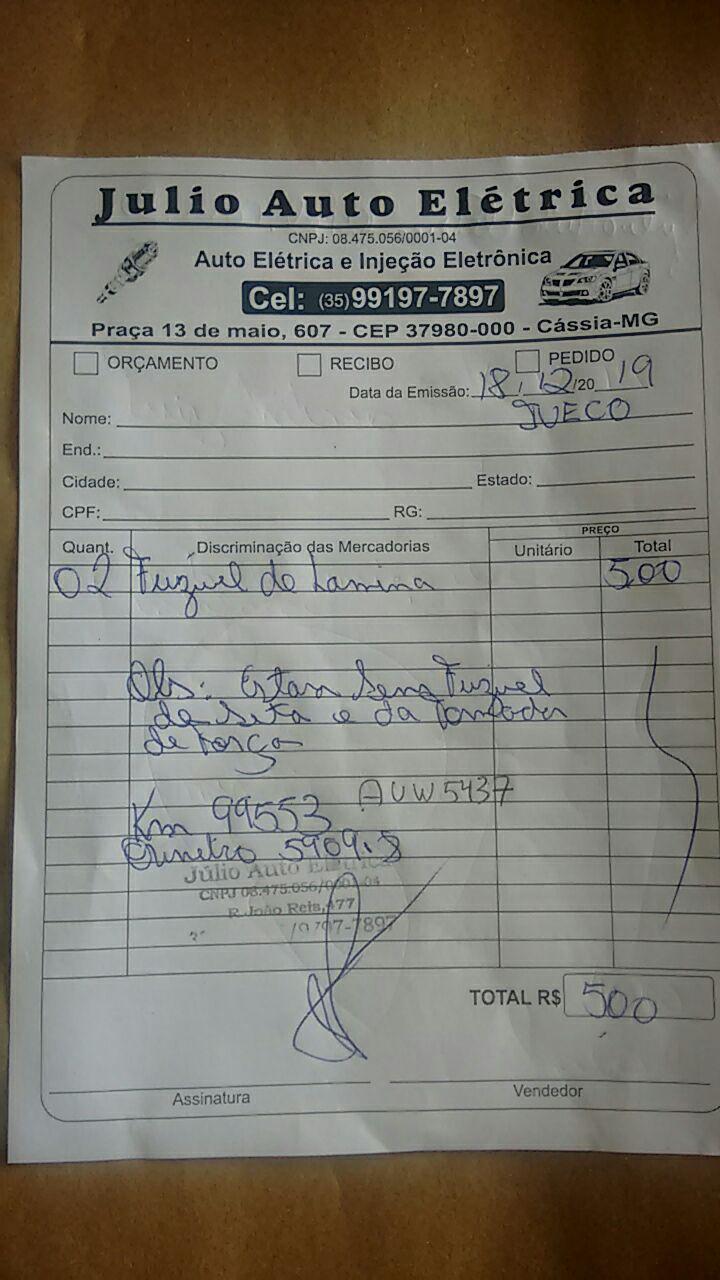 Julio Auto Elétrica
CNPJ: 08.475.056/0001-04
Auto Elétrica e Injeção Eletrônica
Cel: (35) 99197-7897
Praça 13 de maio, 607 - CEP 37980-000 - Cássia-MG
ORÇAMENTO RECIBO PEDIDO
Data da Emissão: 18/12/20 19
Nome: IVECO
End.:
Cidade: Estado:
CPF: RG:
PREÇO
Quant. Discriminação das Mercadorias Unitário Total
02 Fuzivel de Lamina 500
Obs: Estava Sem Fuzivel
de Seta e da
de força
Km 99553 AUW5437
5909.8
Júlio Auto Elétrica
CNPJ 08.475.056/0001-04
R. João Reis, 477
7-7897
TOTAL R$ 500
Assinatura Vendedor